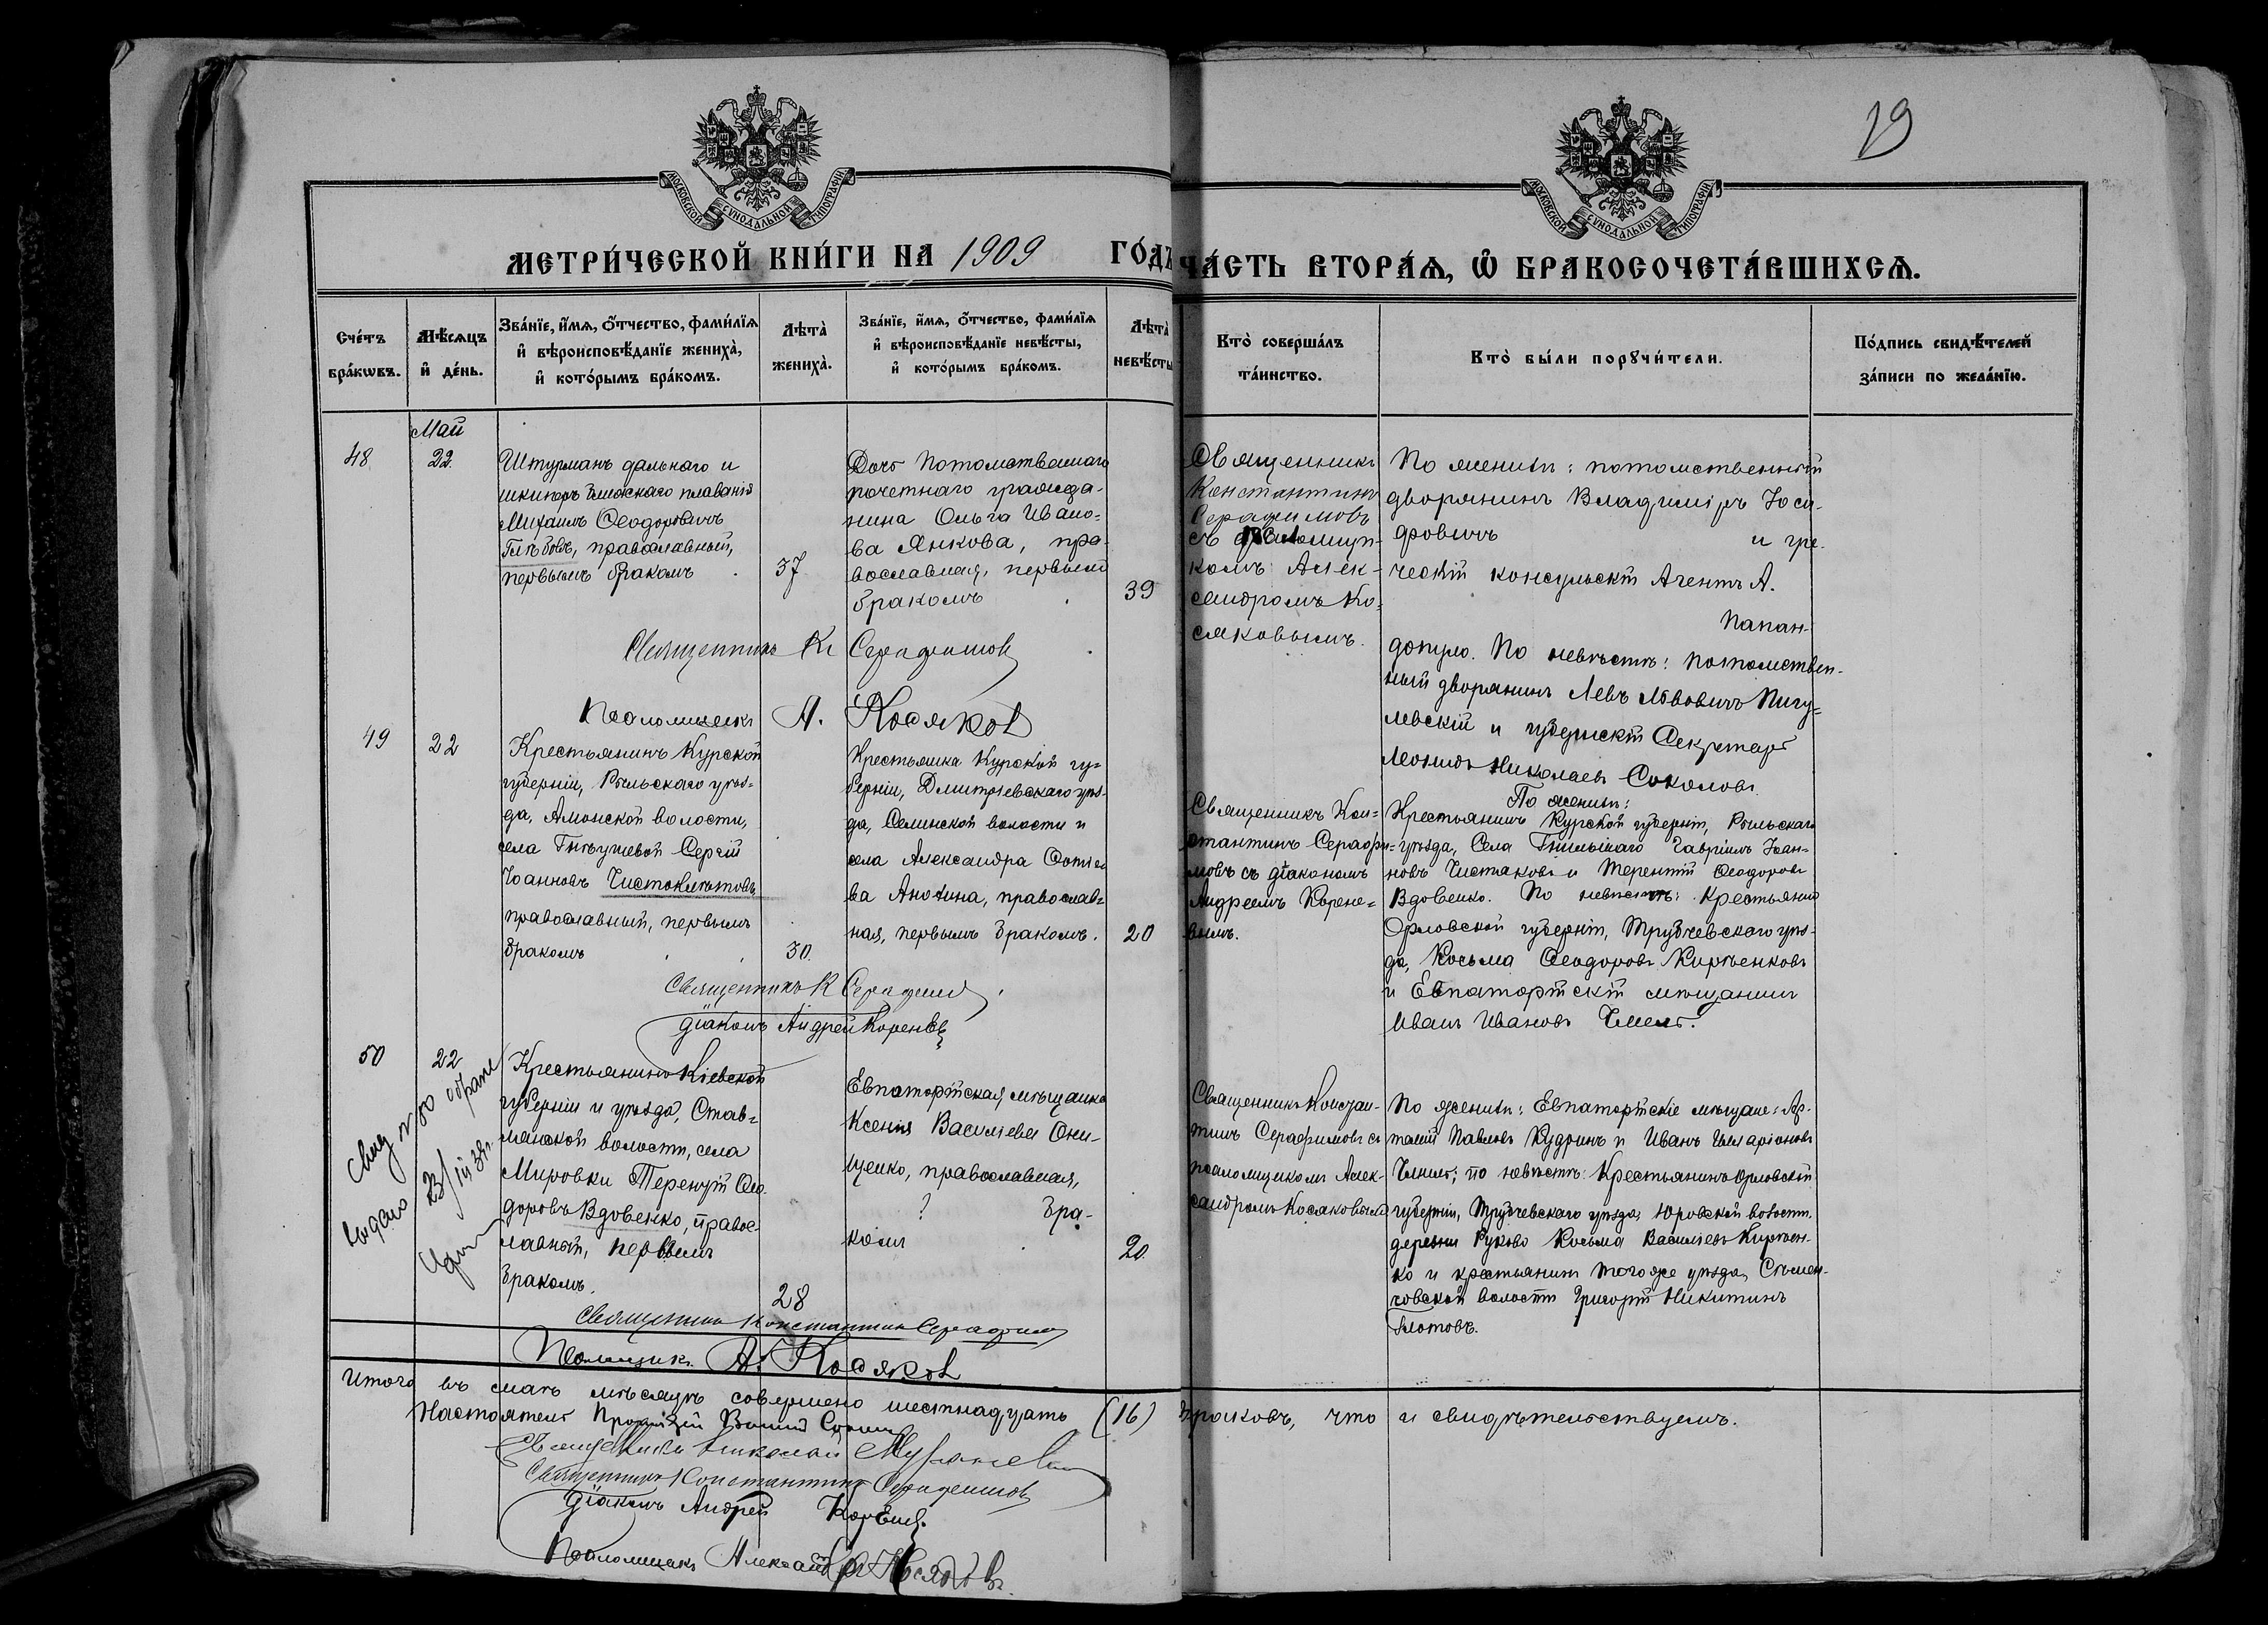 19
МОСКОВСКОЙ СѴНОДАЛЬНОЙ ТИПОГРАФІИ
МОСКОВСКОЙ СѴНОДАЛЬНОЙ ТИПОГРАФІИ
МЕТРИ́ЧЕСКОЙ КНИ́ГИ НА 1909 ГО́ДЪ
ЧА́СТЬ ВТОРА́Ѧ, Ѽ БРАКОСОЧЕТА́ВШИХСѦ.
Сче́тъ бра́кѡвъ.
Мѣ́сѧцъ и҆ де́нь.
Зва́нїе, и҆́мѧ, ѻ҆́тчество, фами́лїѧ
и҆ вѣроисповѣ́данїе жениха̀,
и҆ кото́рымъ бра́комъ.
Лѣта̀ жениха̀.
Зва́нїе, и҆́мѧ, ѻ҆́тчество, фами́лїѧ
и҆ вѣроисповѣ́данїе невѣ́сты,
и҆ кото́рымъ бра́комъ.
Лѣта̀ невѣ́сты
Кто̀ соверша́лъ
та́инство.
Кто̀ бы́ли порꙋчи́тели.
По́дпись свидѣ́телей
за́писи по жела́нїю.
Май
48
22.
Штурманъ дальнаго и
шкиперъ ближскаго плаванія
Михаилъ Ѳеодоровичъ
Глѣбовъ, православный,
первымъ бракомъ
37
Дочь потомственнаго
почетнаго гражда-
нина Ольга Ивано=
ва Янкова, пра-
вославная, первымъ
бракомъ
39
Священникъ
Константинъ
Серафимовъ
съ псаломщи-
комъ Алек-
сандромъ Ко-
сяковымъ.
По женихѣ: потомственный
дворянинъ Владиміръ Іоси-
фовичъ и гре-
ческій консульскій Агентъ А.
Папан-
допуло. По невѣстѣ: потомствен-
ный дворянинъ Левъ Львовичъ Пигу=
левскій и губернскій Секретарь
Леонидъ Николаевъ Соколовъ.
Священникъ К. Серафимов
Псаломщикъ А. Косяков
49
22
Крестьянинъ Курской
губерніи, Рыльскаго уѣз=
да, Амонской волости,
села Гнѣушевой Сергій
Іоанновъ Чистоклѣтовъ
православный, первымъ
бракомъ
30.
Крестьянка Курской гу=
берніи, Дмитріевскаго уѣз-
да, Селинской волости и
села Александра Фотіе
ва Анохина, православ=
ная, первымъ бракомъ.
20
Священникъ Кон=
стантинъ Серафи=
мовъ съ діакономъ
Андреемъ Корене=
вымъ.
По женихѣ:
Крестьянинъ Курской губерніи, Рыльскаго
уѣзда, Села Гавріилъ Іоан-
новъ Чистяковъ и Терентій Ѳеодоровъ
Вдовенко. По невѣстѣ: Крестьянинъ
Орловской губерніи, Трубчевскаго уѣз-
да, Косьма Ѳеодоровъ Кирѣенковъ
и Евпаторійскій мѣщанинъ
Иванъ Ивановъ Чмель.
Священникъ К Серафимов
діаконъ Андрей Коренев
50
22
Свид № 80 о браке
выдано 23/III
Крестьянинъ Кіевской
губерніи и уѣзда, Став=
лянской волости, села
Мировки Терентій Ѳео-
доровъ Вдовенко, правос-
лавный, первымъ
бракомъ.
28
Евпаторійская мѣщанка
Ксенія Василіева Они-
щенко, православная,
? бра-
комъ
20
Священникъ Констан-
тинъ Серафимовъ съ
псаломщикомъ Алек-
сандромъ Косяковымъ
По женихѣ: Евпаторійскіе мѣщане: Ар-
темій Павловъ Кудринъ и Иванъ Иларіоновъ
Чмиль; по невѣстѣ: Крестьянинъ Орловской
губерніи, Трубчевскаго уѣзда, Юровской волости,
деревни Руково Косьма Василіевъ Кирѣен-
ко и крестьянинъ того же уѣзда, Сѣмен-
човской волости Григорій Никитинъ
Болотовъ.
Священникъ Константинъ Серафимов
Псаломщикъ А. Косяков
Итого въ маѣ мѣсяцѣ совершено шестнадцать (16) браковъ, что и свидѣтельствуемъ.
Настоятель Протоіерей
Священникъ Николай
Священникъ Константинъ Серафимовъ
Діаконъ Андрей Коренев.
Псаломщикъ Александръ Косяковъ.